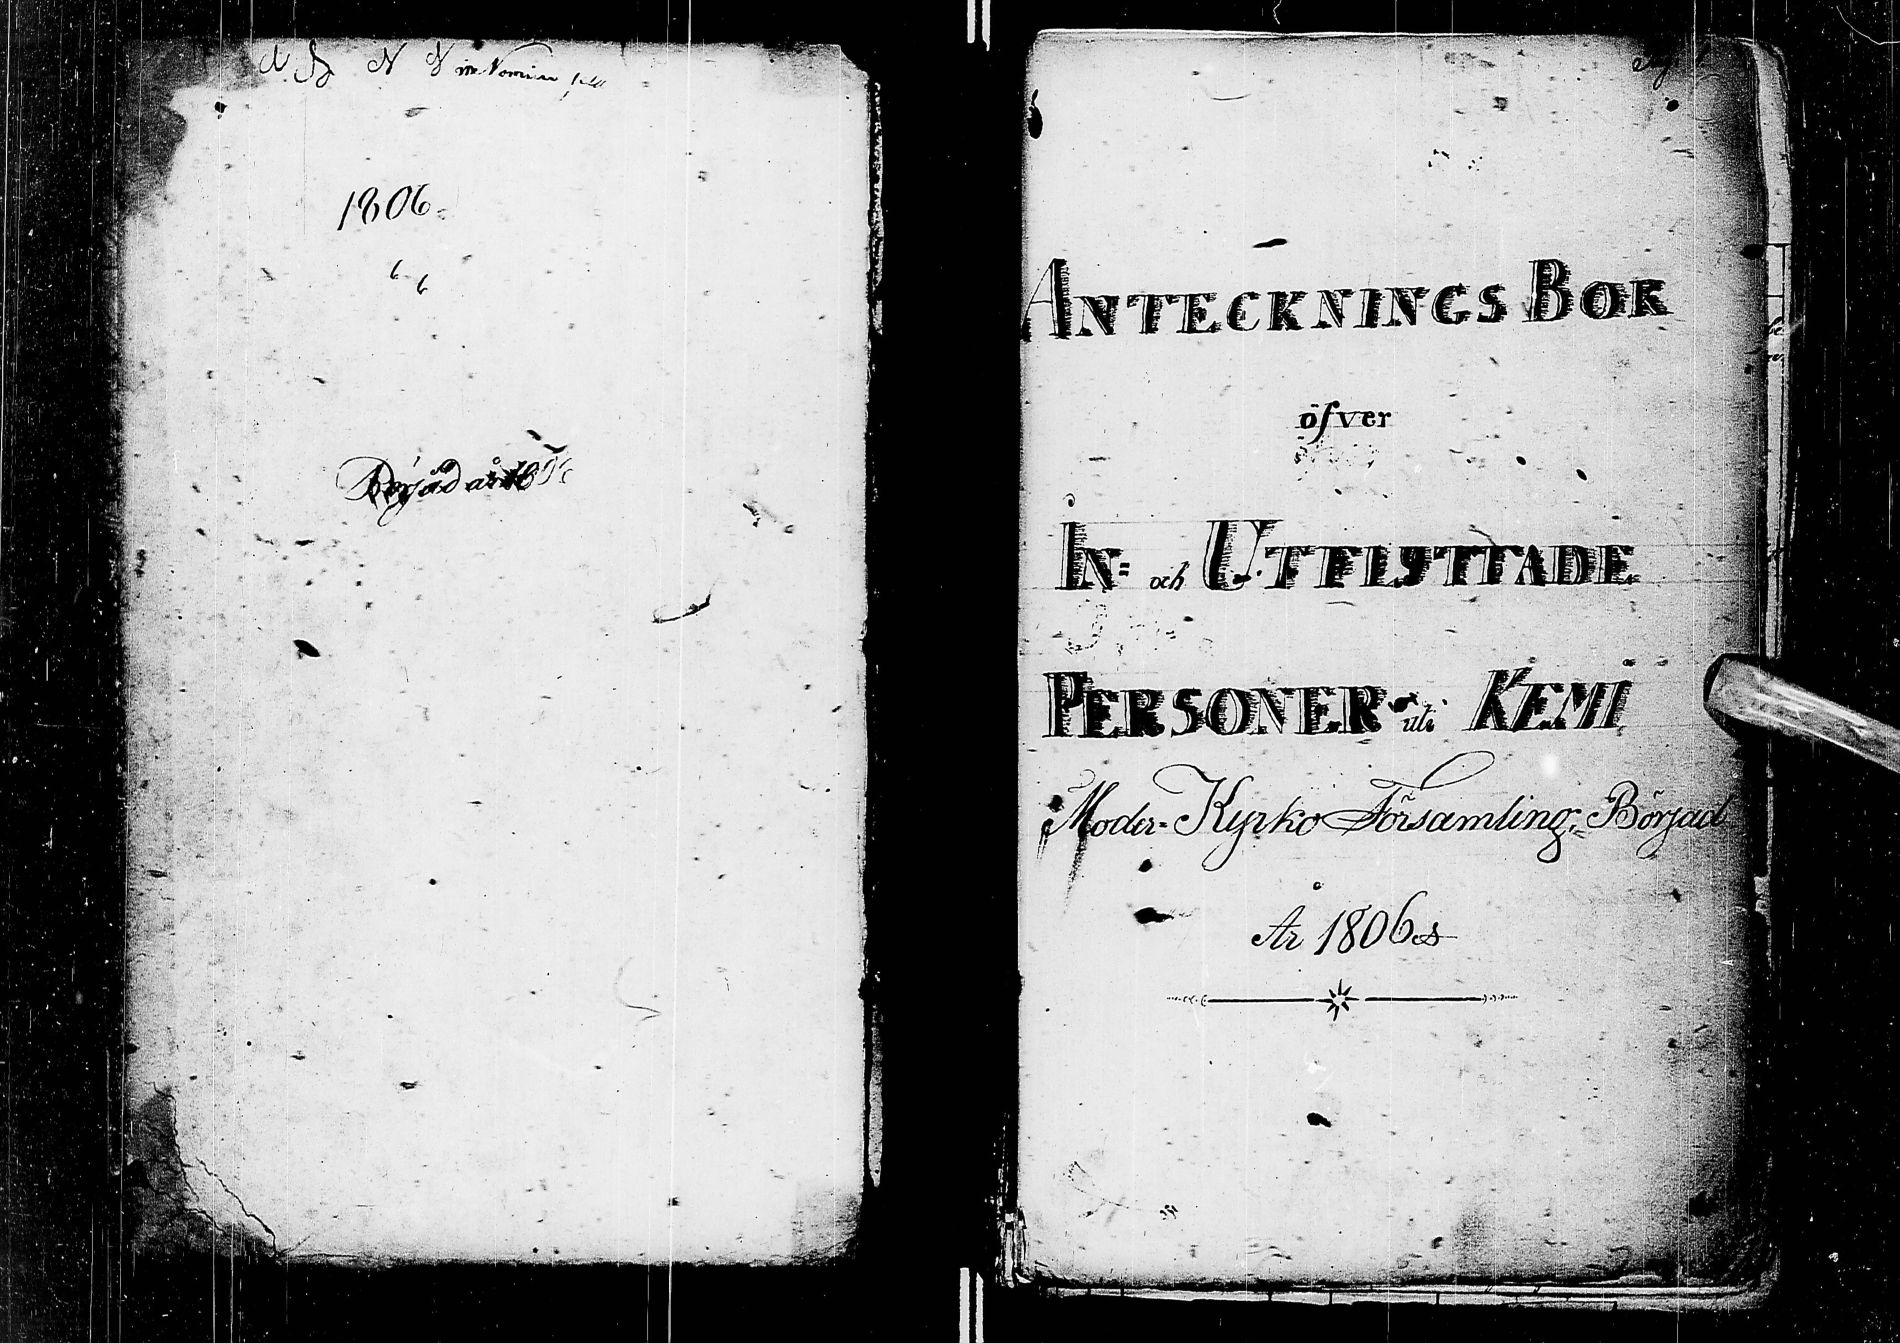 N N N in Nomine
1806
6 6
Börjad år
ANTECKNINGS BOK
öfver
IN= och UTFLYTTADE
PERSONER uti KEMI
Moder= Kyrko Församling;= Börjad
År 1806